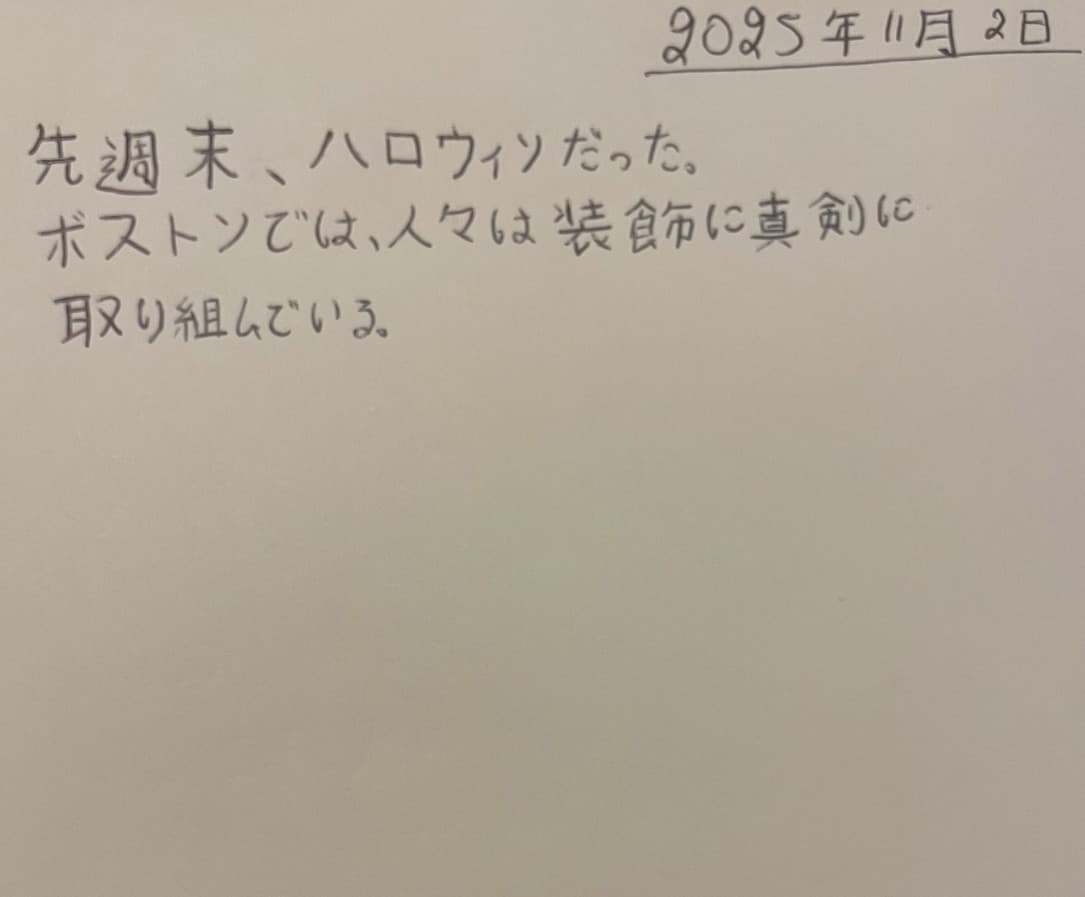 2025年11月2日
先週末、ハロウィンだった。
ボストンでは、人々は装飾に真剣に
取り組んでいる。